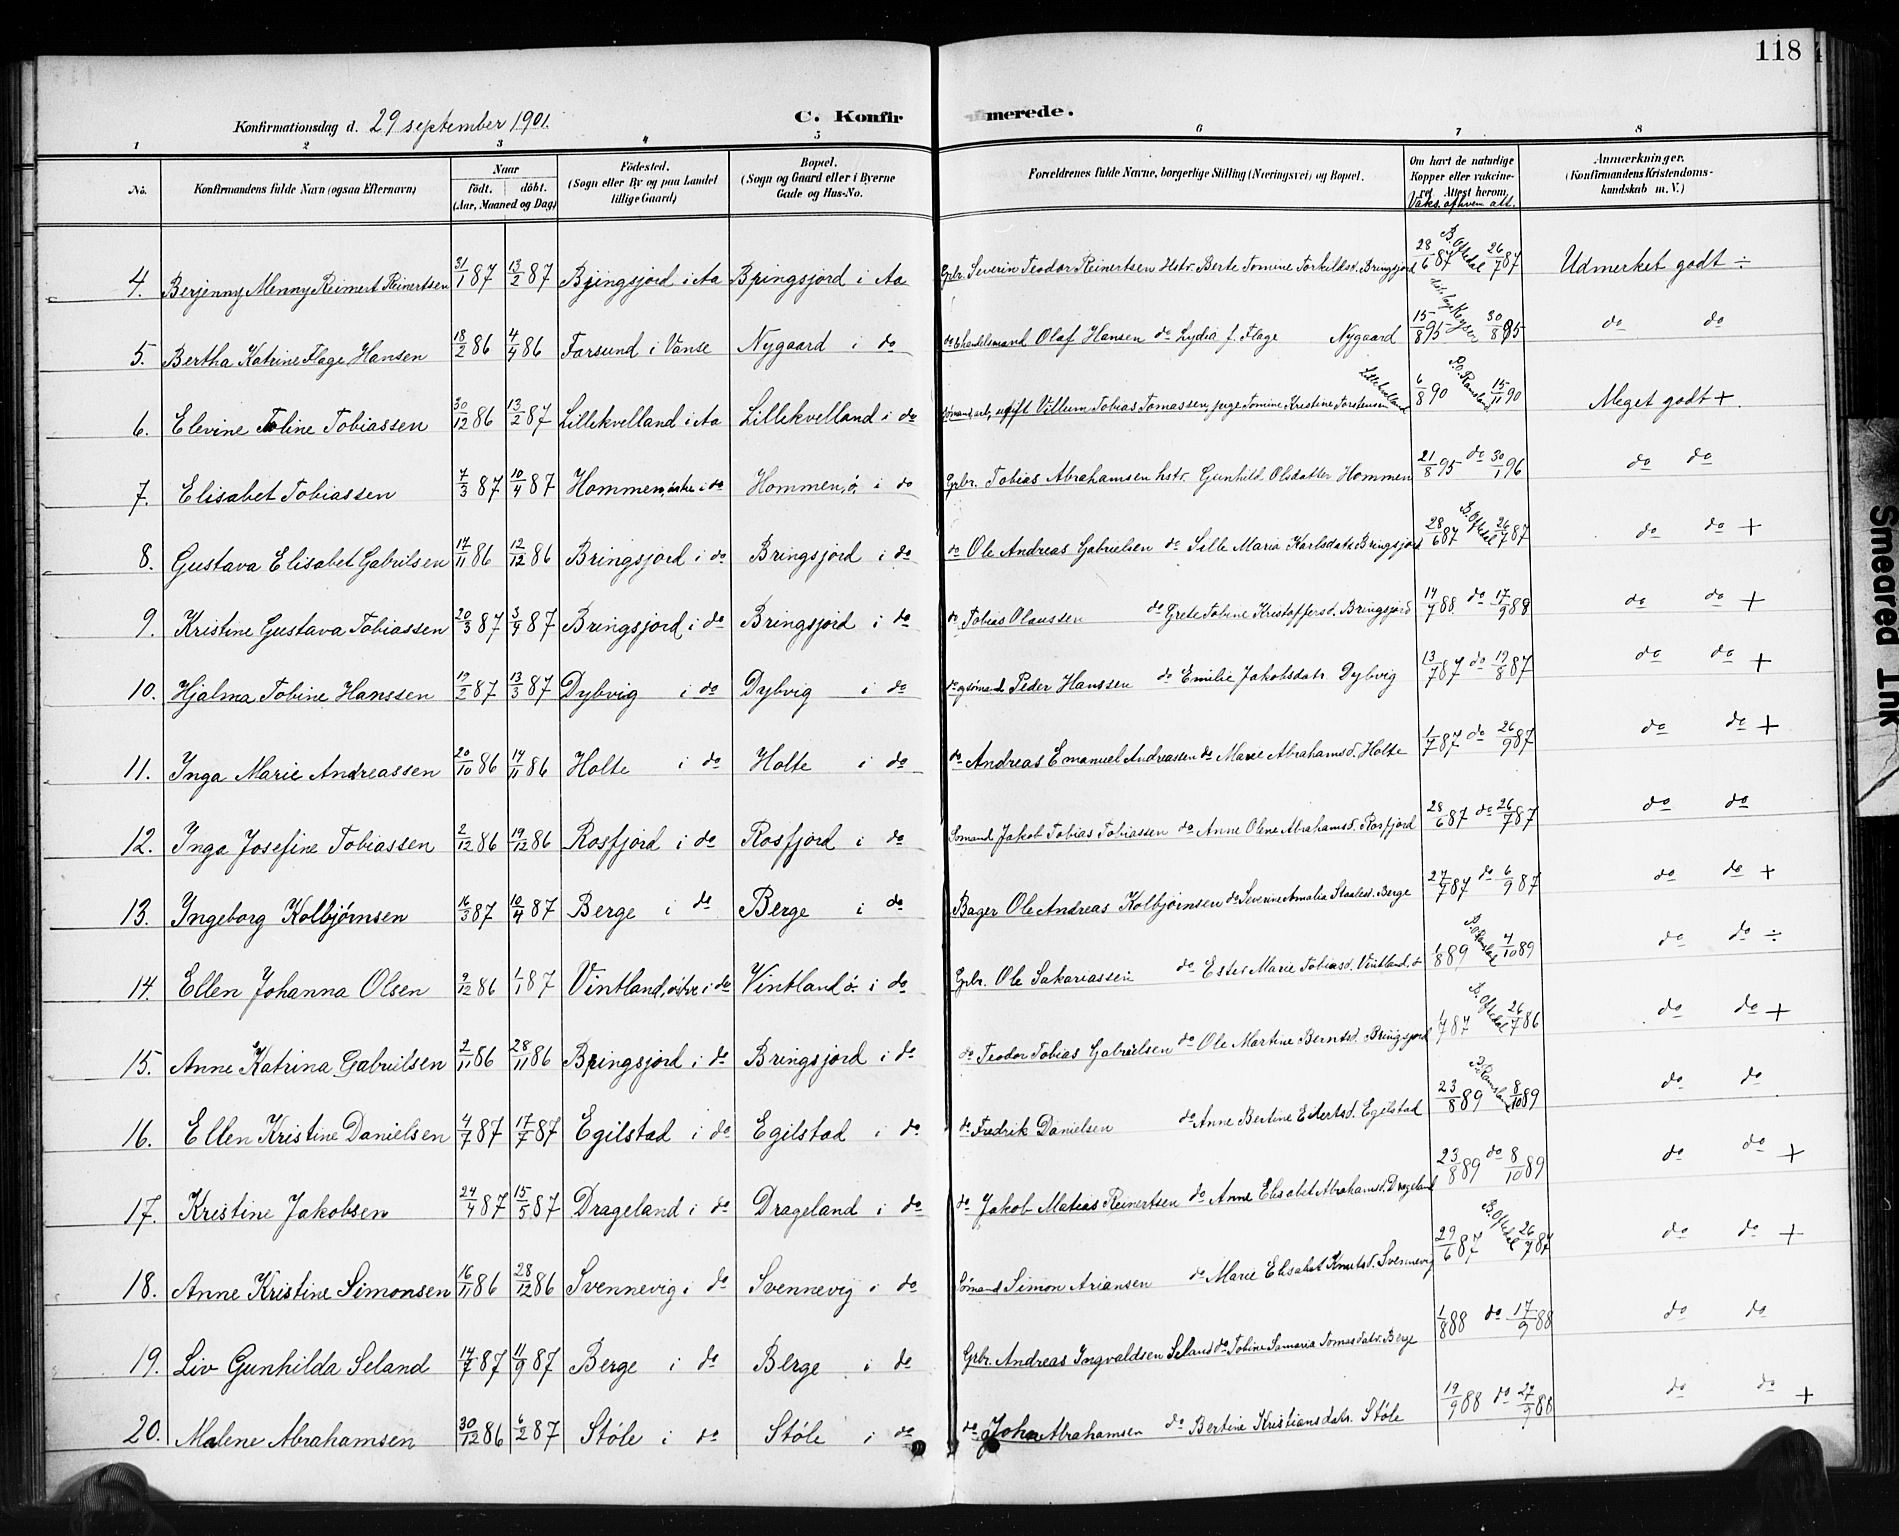 118
Konfirmationsdag d. 29 september 1901.
C. Konfirmerede.
1 2 3 4 5 6 7 8
No. Konfirmandens fulde Navn (ogsaa Efternavn) Naar födt. döbt. (Aar, Maaned og Dag) Födested. (Sogn eller By og paa Landet tillige Gaard) Bopæl. (Sogn og Gaard eller i Byerne Gade og Hus-No. Forældrenes fulde Navne, borgerlige Stilling (Næringsvei) og Bopæl. Om havt de naturlige Kopper eller vakcineret. Attest herom. Vaks. af hvem att. Anmærkninger. (Konfirmandens Kristendomskundskab m. V.)
4. Berjenny Menny Reimert Reinertsen 31/1 87 13/2 87 Bringsjord i Aa Bringsjord i Aa Grbr. Severin Teodor Reinertsen Hstr. Berte Tomine Torkildsd. Bringsjord 28/6 87 B. Oftedal 26/7 87 Udmerket godt ÷
5. Bertha Katrine Flage Hansen 18/2 86 4/4 86 Farsund i Vanse Nygaard i do do & handelsmand Olaf Hansen do Lydia f. Flage Nygaard 15/8 95 Keyser 30/8 95 do do
6. Elevine Toline Tobiassen 30/12 86 13/2 87 Lillekvelland i Aa Lillekvelland i do ugift Villum Tobias Tomassen, pige Tomine Kristine Torstensen Lillekvelland 6/8 90 O. Ramsland 15/11 90 Meget godt +
7. Elisabet Tobiassen 7/3 87 10/4 87 Hommen, östre i do Hommen, ö. i do Grbr. Tobias Abrahamsen hstr. Gunhild Olsdatter Hommen 21/8 95 do 30/1 96 do do
8. Gustava Elisabet Gabrilsen 17/11 86 12/12 86 Bringsjord i do Bringsjord i do do Ole Andreas Gabrielsen do Sille Maria Karlsdatr Bringsjord 28/6 87 B. Oftedal 26/7 87 do do +
9. Kristine Gustava Tobiassen 20/3 87 3/4 87 Bringsjord i do Bringsjord i do do Tobias Olaussen do Grete Tobine Kristoffersd. Bringsjord 88 do 17/9 88 do do +
10. Hjalma Tobine Hanssen 19/2 87 13/3 87 Dybvig i do Dybvig i do do og sömand Peder Hanssen do Emilie Jakobsdatr Dybvig 13/7 87 do 19/8 87 do do +
11. Inga Marie Andreassen 20/10 86 14/11 86 Holte i do Holte i do do Andreas Emanuel Andreassen do Marie Abrahamsd. Holte 1/7 87 do 26/9 87 do do +
12. Inga Josefine Tobiassen 2/12 86 19/12 86 Rosfjord i do Rosfjord i do Sömand Jakob Tobias Tobiassen do Anne Olene Abrahamsd. Rosfjord 28/6 87 do 26/7 87 do do
13. Ingeborg Kolbjörnsen 16/3 87 10/4 87 Berge i do Berge i do Bager Ole Andreas Kolbjörnsen do Severine Amalia Staalesd. Berge 27/7 87 do 6/9 87 do do +
14. Ellen Johanna Olsen 9/12 86 1/1 87 Vintland, östre i do Vintland ö. i do Grbr. Ole Sakariassen do Ester Marie Tobiasd. Vintland, ö 1/8 89 O. Ramsland 4/10 89 do do ÷
15. Anne Katrina Gabrielsen 2/11 86 28/11 86 Bringsjord i do Bringsjord i do do Teodor Tobias Gabrielsen do Ole Martine Berntsd. Bringsjord 1/7 87 B. Oftedal 26/7 86 do do +
16. Ellen Kristine Danielsen 4/7 87 17/7 87 Egilstad i do Egilstad i do do Fredrik Danielsen do Anne Bertine Eilertsd. Egilstad 23/8 89 O. Ramsland 8/10 89 do do
17. Kristine Jakobsen 24/4 87 15/5 87 Drageland i do Drageland i do do Jakob Matias Reinertsen do Anne Elisabet Abrahamsd. Drageland 23/8 89 do 8/10 89 do do +
18. Anne Kristine Simonsen 16/11 86 28/12 86 Svennevig i do Svennevig i do Sömand Simon Ariansen do Marie Elisabet Knutsd. Svennevig 29/6 87 B. Oftedal 26/7 87 do do +
19. Liv Gunhilda Seland 14/7 87 11/9 87 Berge i do Berge i do Grbr. Andreas Ingvaldsen Seland do Tobine Samaria Tomasdatr. Berge 1/8 88 do 17/9 88 do do
20. Malene Abrahamsen 30/12 86 6/2 87 Stöle i do Stöle i do do John Abrahamsen do Bertine Kristiansdatr. Stöle 19/9 88 do 27/9 88 do do +
Smeared Ink